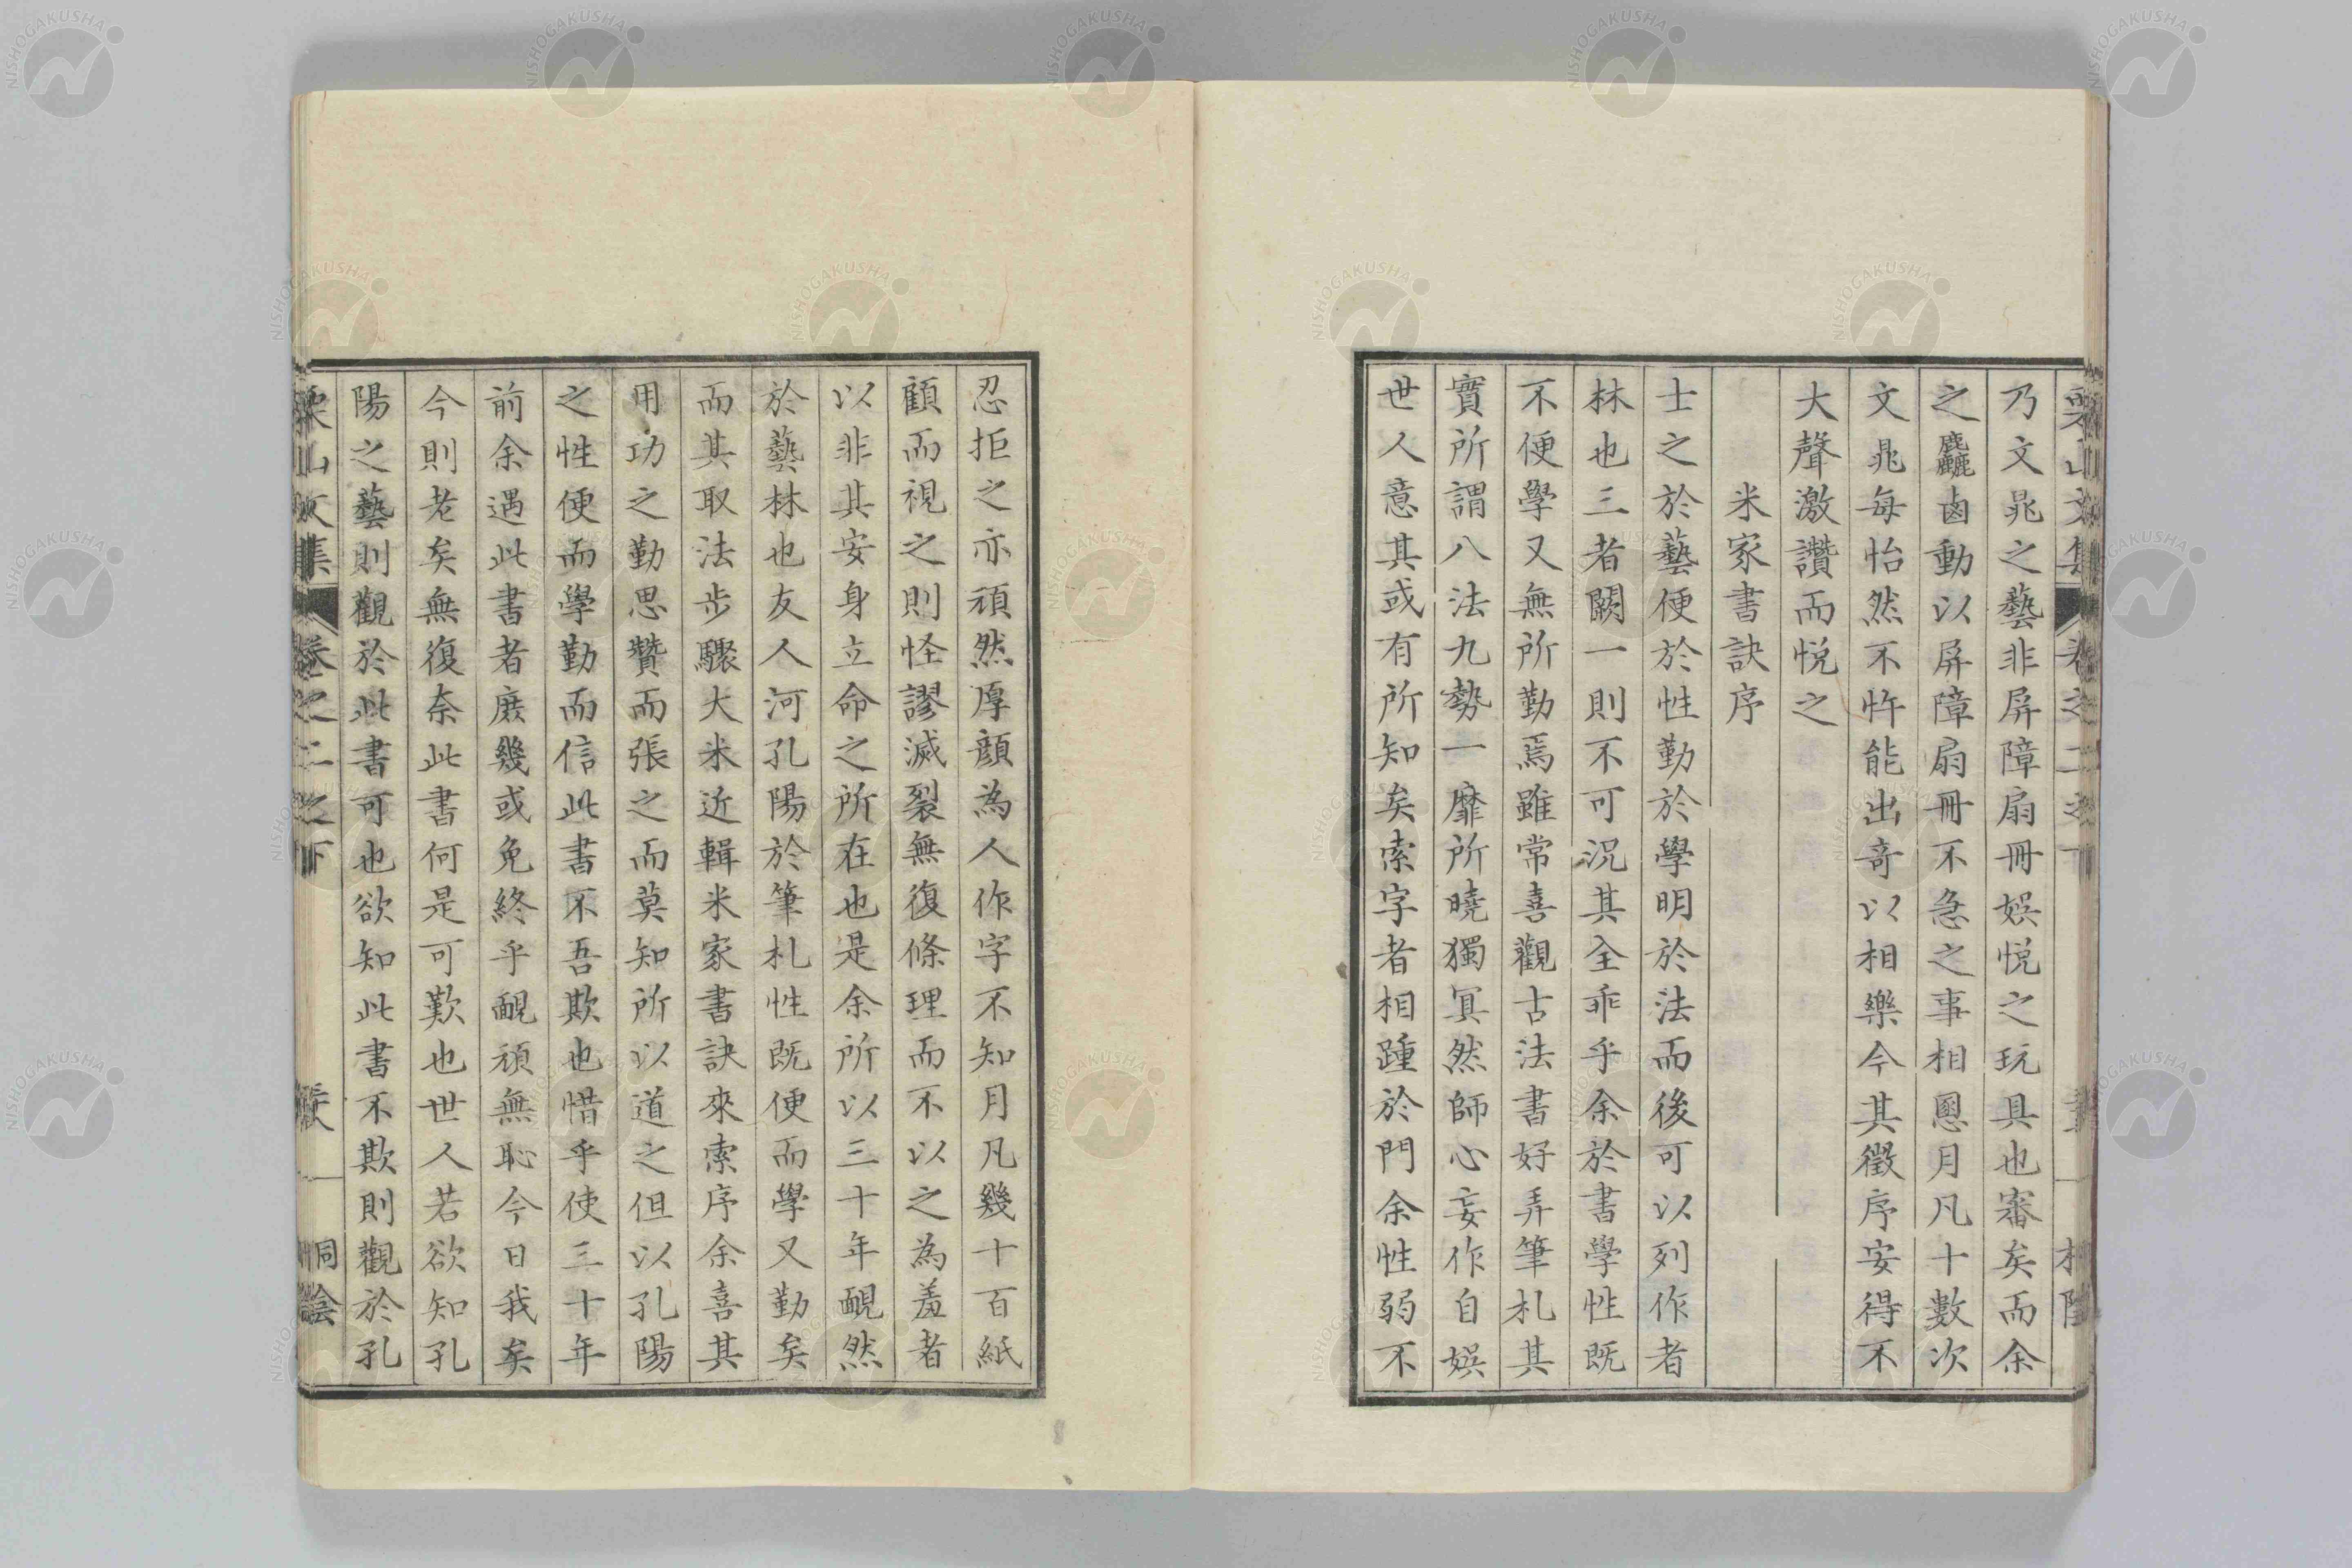 乃文晁之藝非屏障扇冊娯悦之玩具也審矣而余
之麤鹵動以屏障扇冊不急之事相慁月凡十數次
文晁每怡然不忤能出奇以相樂今其徵序安得不
大聲激讚而悦之
米家書訣序
士之於藝便於性勤於學明於法而後可以列作者
林也三者闕一則不可況其全乖乎余於書學性既
不便學又無所勤焉雖常喜觀古法書好弄筆札其
實所謂八法九勢一靡所曉獨冥然師心妄作自娯
世人意其或有所知矣索字者相踵於門余性弱不
忍拒之亦頑然厚顔為人作字不知月凡幾十百紙
顧而視之則怪謬滅裂無復條理而不以之為羞者
以非其安身立命之所在也是余所以三十年靦然
於藝林也友人河孔陽於筆札性既便而學又勤矣
而其取法步驟大米近輯米家書訣來索序余喜其
用功之勤思贊而張之而莫知所以道之但以孔陽
之性便而學勤而信此書不吾欺也惜乎使三十年
前余遇此書者庶幾或免終乎靦頑無恥今日我矣
今則老矣無復奈此書何是可歎也世人若欲知孔
陽之藝則觀於此書可也欲知此書不欺則觀於孔
栗山文集 卷之二之下
NISHOGAKUSHA